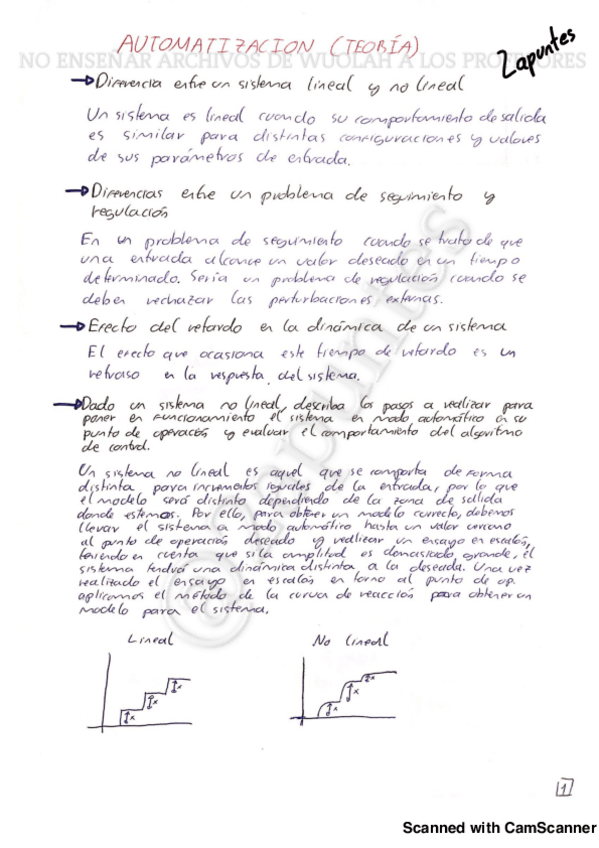 AUTOMATIZACION (TEORÍA)
2apuntes
NO ENSEÑAR ARCHIVOS DE WUOLAH A LOS PROFESORES
Diferencia entre un sistema lineal y no lineal
Un sistema es lineal cuando su comportamiento de salida
es similar para distintas configuraciones y valores
de sus parámetros de entrada.
Diferencias entre un problema de seguimiento y
regulación
En un problema de seguimiento cuando se trata de que
una entrada alcance un valor deseado en un tiempo
determinado. Sería un problema de regulación cuando se
deben rechazar las perturbaciones externas.
Efecto del retardo en la dinámica de un sistema
El efecto que ocasiona este tiempo de retardo es un
retraso en la respuesta del sistema.
Dado un sistema no lineal, describa los pasos a realizar para
poner en funcionamiento el sistema en modo automático en su
punto de operación y evaluar el comportamiento del algoritmo
de control.
Un sistema no lineal es aquel que se comporta de forma
distinta para incrementos iguales de la entrada, por lo que
el modelo será distinto dependiendo de la zona de salida
donde estemos. Por ello, para obtener un modelo correcto, debemos
llevar el sistema a modo automático hasta un valor cercano
al punto de operación deseado y realizar un ensayo en escalón,
teniendo en cuenta que si la amplitud es demasiado grande, el
sistema tendrá una dinámica distinta a la deseada. Una vez
realizado el ensayo en escalón en torno al punto de op.
aplicamos el método de la curva de reacción para obtener un
modelo para el sistema.
Lineal
No lineal
x
x
x
x
x
x
1
@2apuntes
Scanned with CamScanner